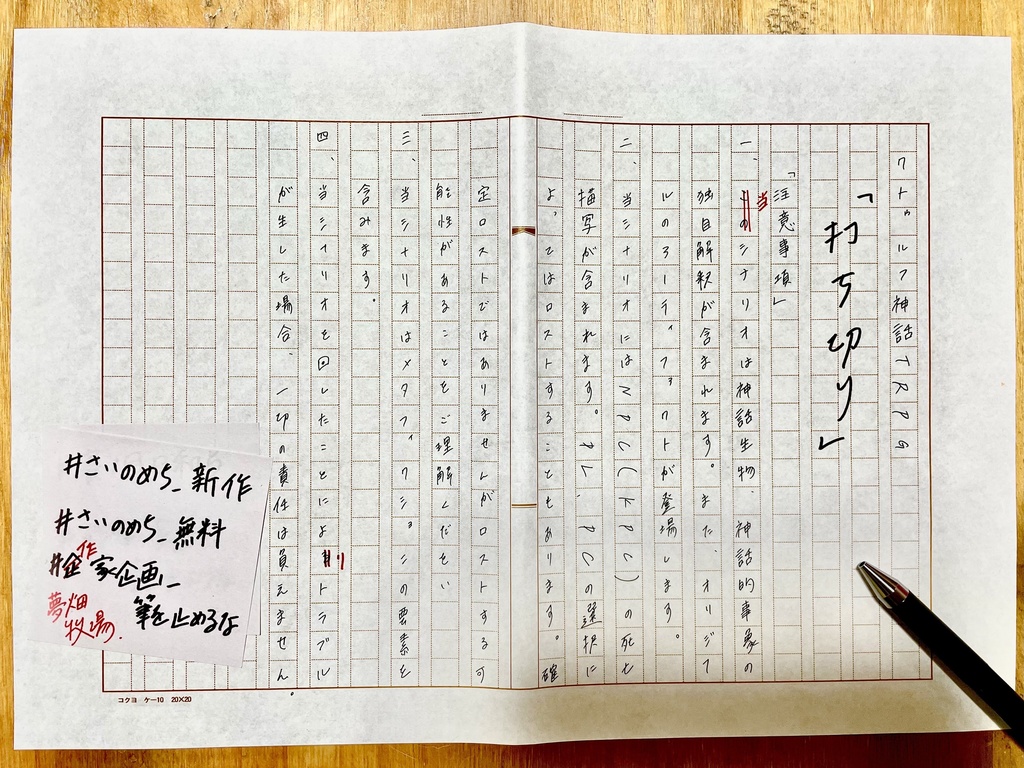 クトゥルフ神話TRPG
「打ち切り」
「注意事項」
一、当シナリオは神話生物、神話的事象の
独自解釈が含まれます。また、オリジナ
ルのアーティファクトが登場します。
二、当シナリオにはNPC(KPC)の死亡
描写が含まれます。PL、PCの選択に
よってはロストすることもあります。確
定ロストではありませんがロストする可
能性があることをご理解ください
三、当シナリオはメタフィクションの要素を
含みます。
四、当シナリオを回したことによりトラブル
が生じた場合、一切の責任は負えません。
#さいのめち_新作
#さいのめち_無料
#作家企画_
筆を止めるな
夢畑
牧場.
コクヨ ケー10 20×20